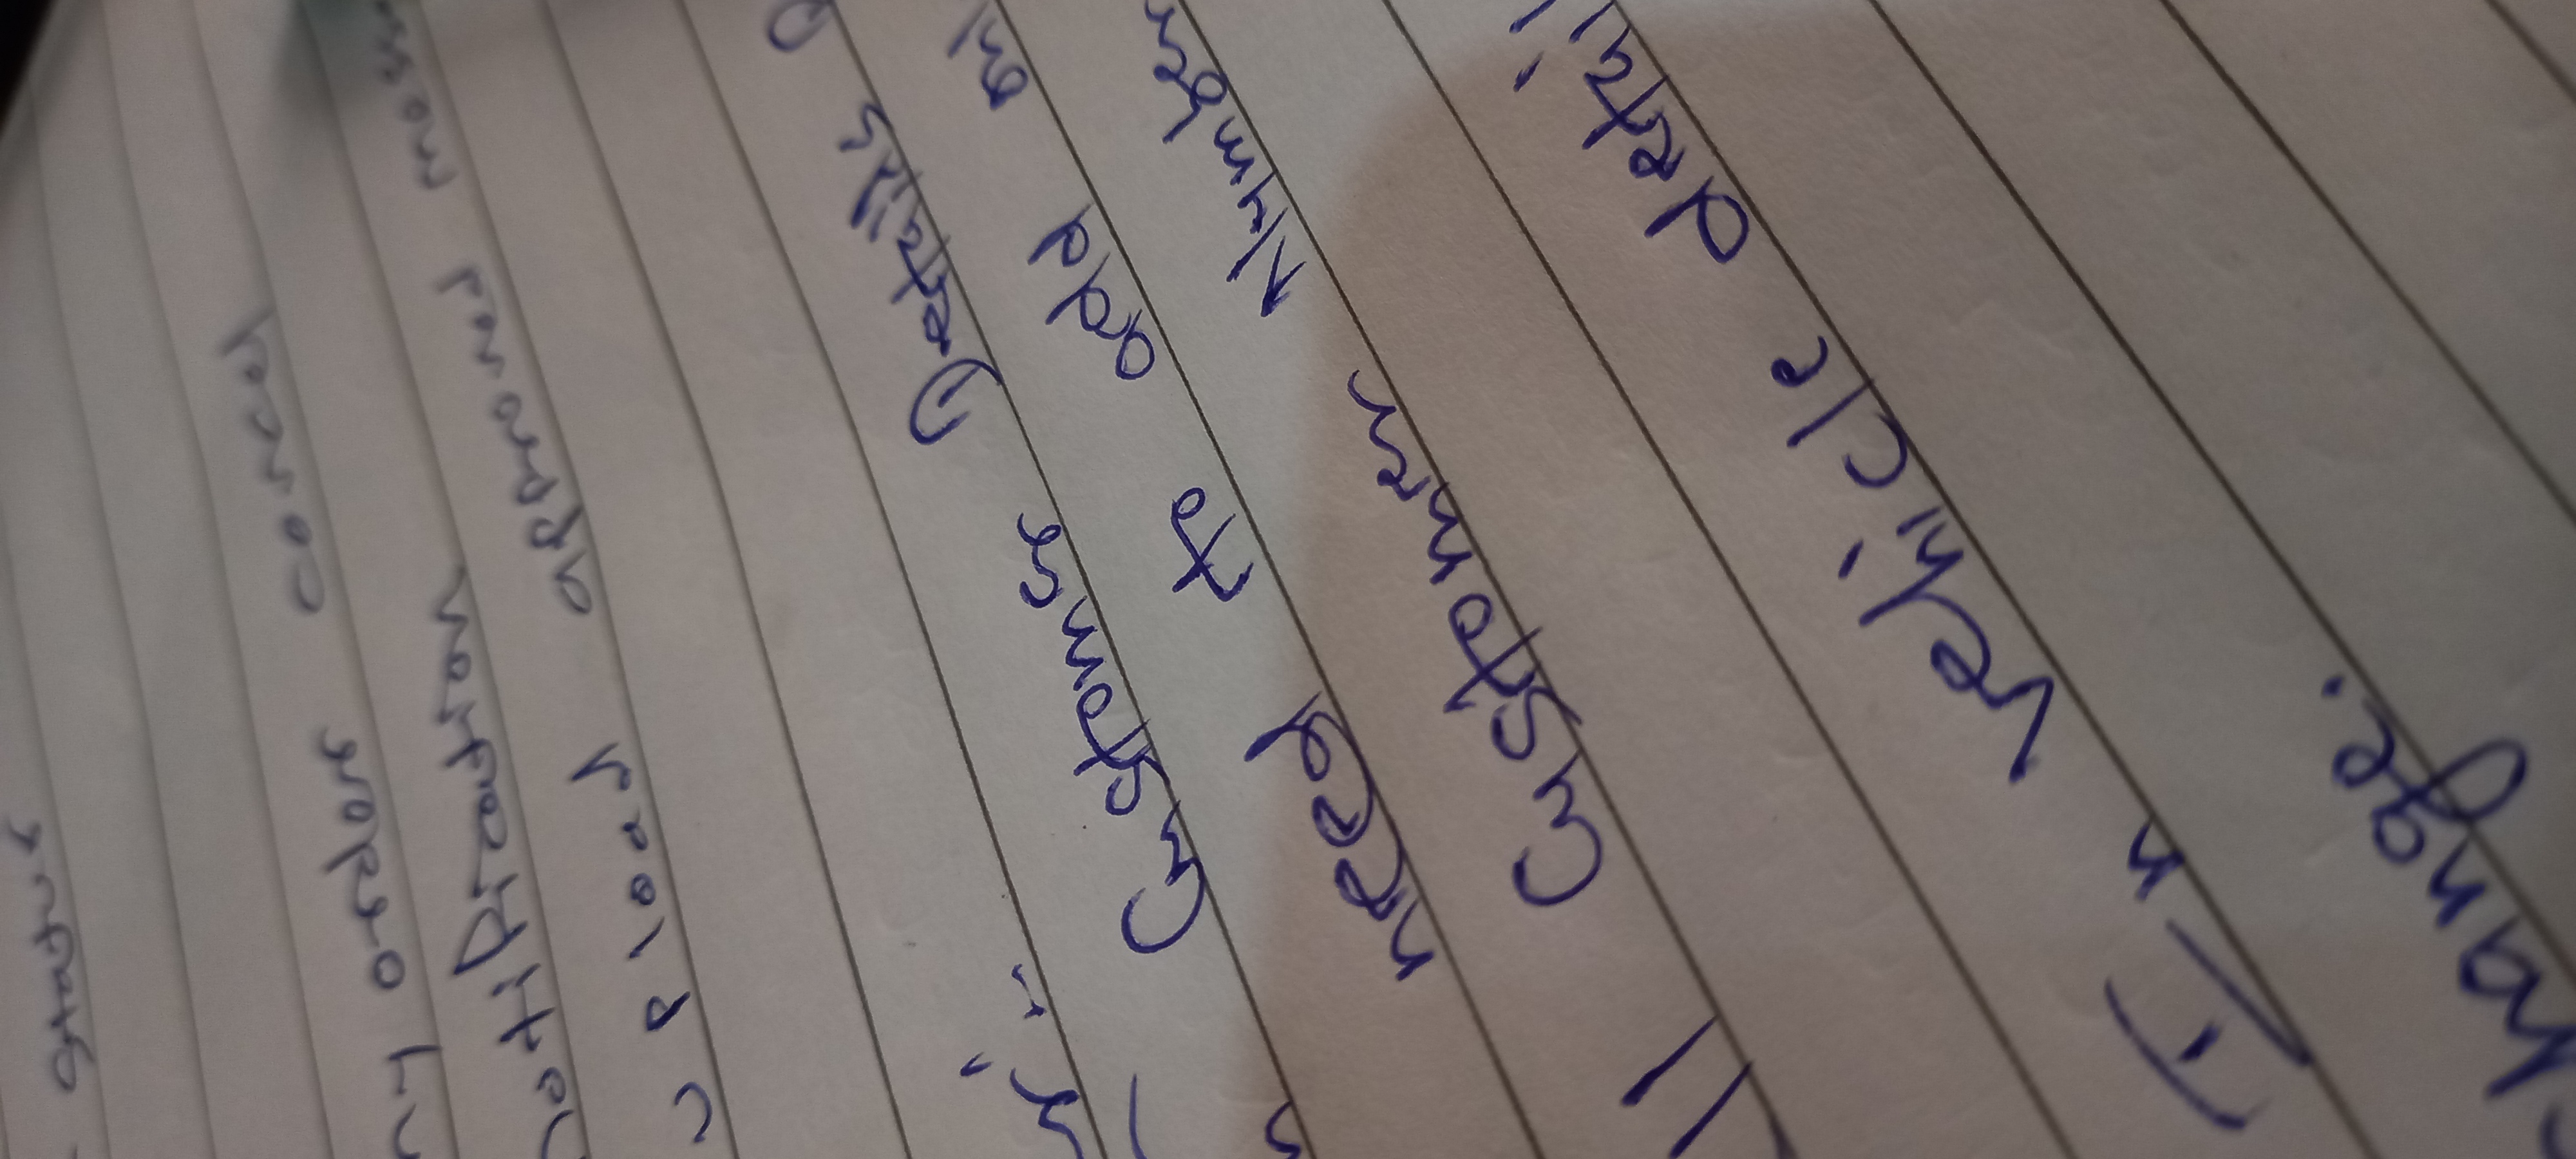 - Status
my orders cancel
notification
upload approved
Customer Details
need to add
Customer Number
In vehicle detail
change.